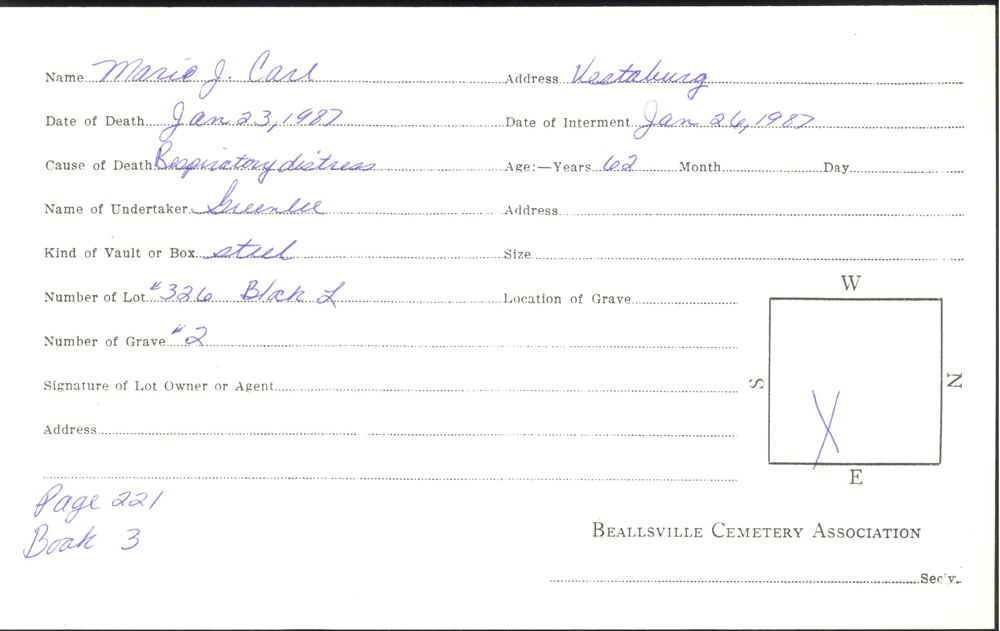 Name Marie J. Carl Address Vestaburg
Date of Death Jan 23, 1987 Date of Interment Jan 26, 1987
Cause of Death Respiratory distress Age:—Years 62 Month Day
Name of Undertaker Greenlee Address
Kind of Vault or Box steel Size
Number of Lot #326 Block L Location of Grave
W
Number of Grave #2
Signature of Lot Owner or Agent S N
Address
E
Page 221
Book 3
BEALLSVILLE CEMETERY ASSOCIATION
Sec'y.